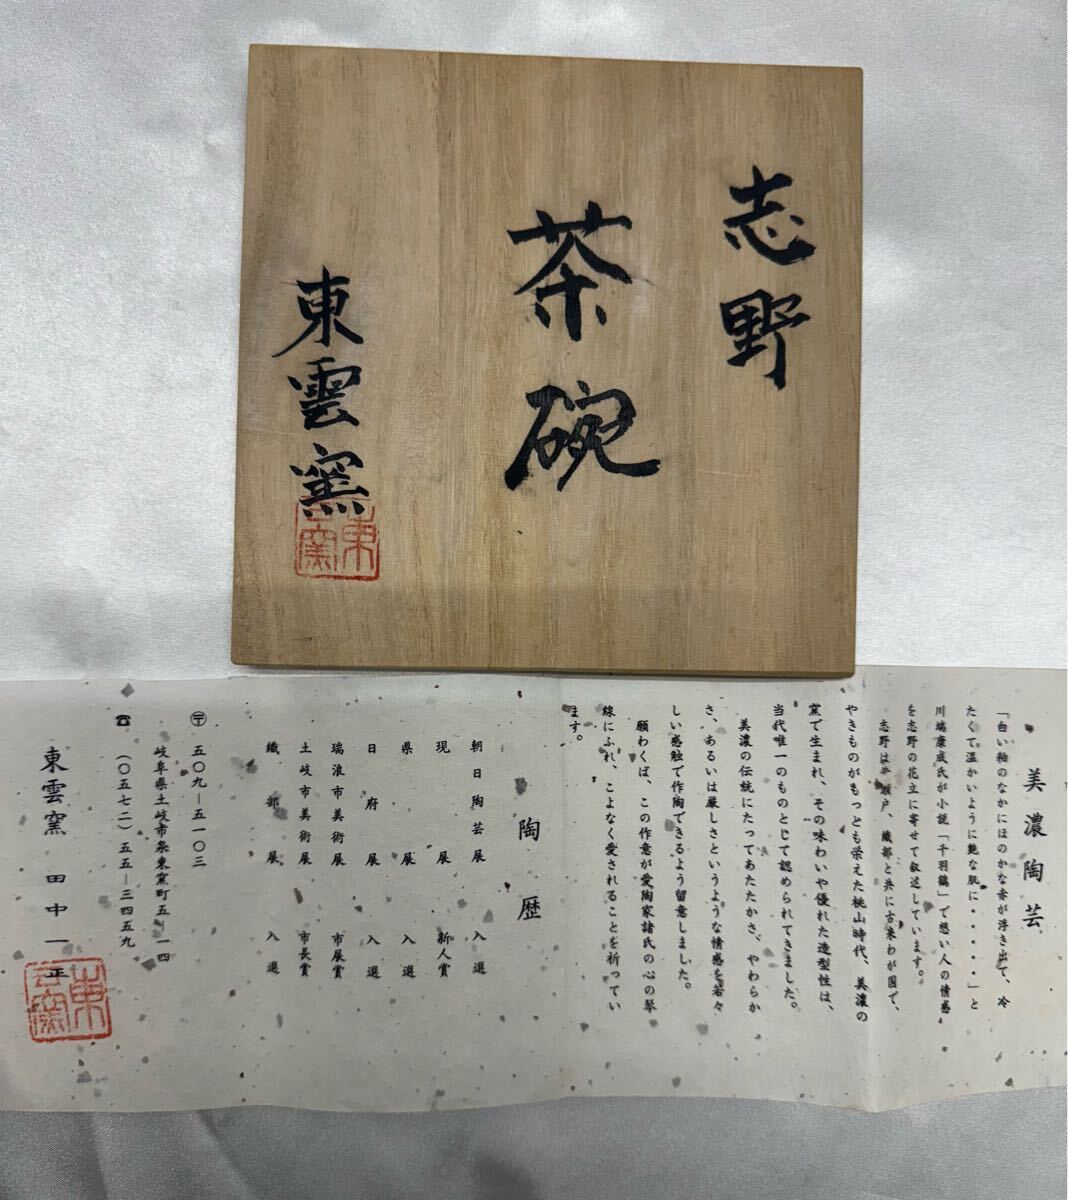 志野
茶碗
東雲窯
東雲窯
美濃陶芸
「白い釉のなかにほのかな赤が浮き出て、冷
たくて温かいように艶な肌に・・・・・」と
川端康成氏が小説「千羽鶴」で想い人の情感
を志野の花立に寄せて叙述しています。
志野は黄瀬戸、織部と共に古来わが国で、
やきものがもっとも栄えた桃山時代、美濃の
窯で生まれ、その味わいや優れた造型性は、
当代唯一のものとして認められてきました。
美濃の伝統にたってあたたかさ、やわらか
さ、あるいは厳しさというような情感を若々
しい感触で作陶できるよう留意しました。
願わくば、この作意が愛陶家諸氏の心の琴
線にふれ、こよなく愛されることを祈ってい
ます。
陶歴
朝日陶芸展 入選
現展 新人賞
県展 入選
日府展 入選
瑞浪市美術展 市展賞
土岐市美術展 市長賞
織部展 入選
〒 五〇九－五一〇三
岐阜県土岐市泉東窯町五－一四
☎ (〇五七二) 五五－三四五九
東雲窯 田中一正
東雲窯